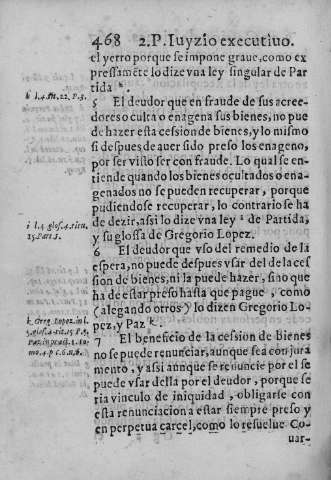 468 2.P. Iuyzio executiuo.
el yerro porque se impone graue, como ex
pressamẽte lo dize vna ley singular de Par
tida h.
h l.4.tit.22. P.3.
5 El deudor que en fraude de sus acree-
dores oculta o enagena sus bienes, no pue
de hazer esta cession de bienes, y lo mismo
si despues de auer sido preso los enageno,
por ser visto ser con fraude. Lo qual se en-
tiende quando los bienes ocultados o ena-
genados no se pueden recuperar, porque
pudiendose recuperar, lo contrario se ha
de dezir, assi lo dize vna ley i de Partida,
y su glossa de Gregorio Lopez.
i l.4 glos.4.titu.
15.Part 5.
6 El deudor que vso del remedio de la
espera, no puede despues vsar del de la ces
sion de bienes, ni la puede hazer, sino que
ha de estar preso hasta que pague, como
(alegando otros) lo dizen Gregorio Lo-
pez, y Paz k.
k Greg. Lopez. in l.
5. glos. 4. tit. 15 P.5.
Paz, in praxi. 1. to-
mo. 4. p c. 6. n, 6.
7 El beneficio de la cession de bienes
no se puede renunciar, aunque sea con jura
mento, y assi aunque se renuncie por el se
puede vsar della por el deudor, porque se
ria vinculo de iniquidad, obligarse con
esta renunciacion a estar siempre preso y
en perpetua carcel, como lo resuelue Co-
uar-